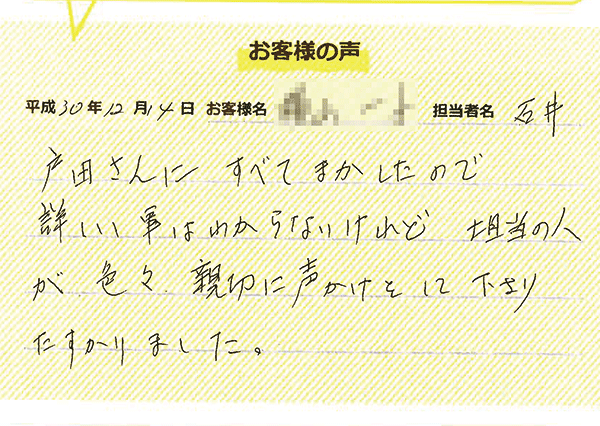 お客様の声
平成30年12月14日 お客様名 担当者名 石井
戸田さんに すべてまかしたので
詳しい事はわからないけれど 担当の人
が 色々 親切に声かけとして下さり
たすかりました。